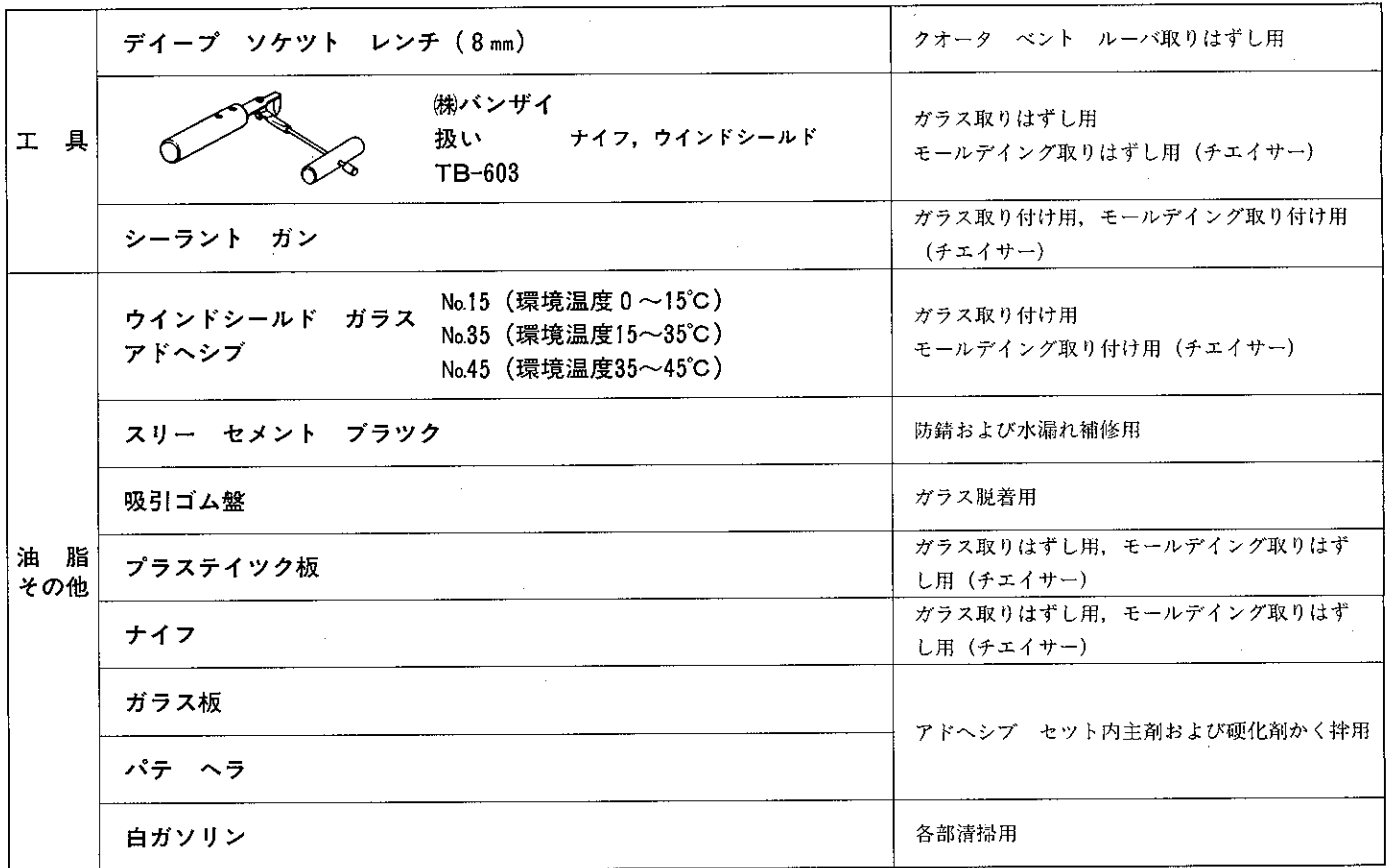 デイープ ソケツト レンチ（8㎜） クオータ ベント ルーバ取りはずし用
工 具
㈱バンザイ
扱い ナイフ，ウインドシールド
TB-603
ガラス取りはずし用
モールデイング取りはずし用（チエイサー）
シーラント ガン
ガラス取り付け用，モールデイング取り付け用
（チエイサー）
油 脂
その他
ウインドシールド ガラス
アドヘシブ
№15（環境温度 0 ～15℃）
№35（環境温度15～35℃）
№45（環境温度35～45℃）
ガラス取り付け用
モールデイング取り付け用（チエイサー）
スリー セメント ブラツク 防錆および水漏れ補修用
吸引ゴム盤 ガラス脱着用
プラステイツク板
ガラス取りはずし用，モールデイング取りはず
し用（チエイサー）
ナイフ
ガラス取りはずし用，モールデイング取りはず
し用（チエイサー）
ガラス板
パテ ヘラ
アドヘシブ セツト内主剤および硬化剤かく拌用
白ガソリン 各部清掃用